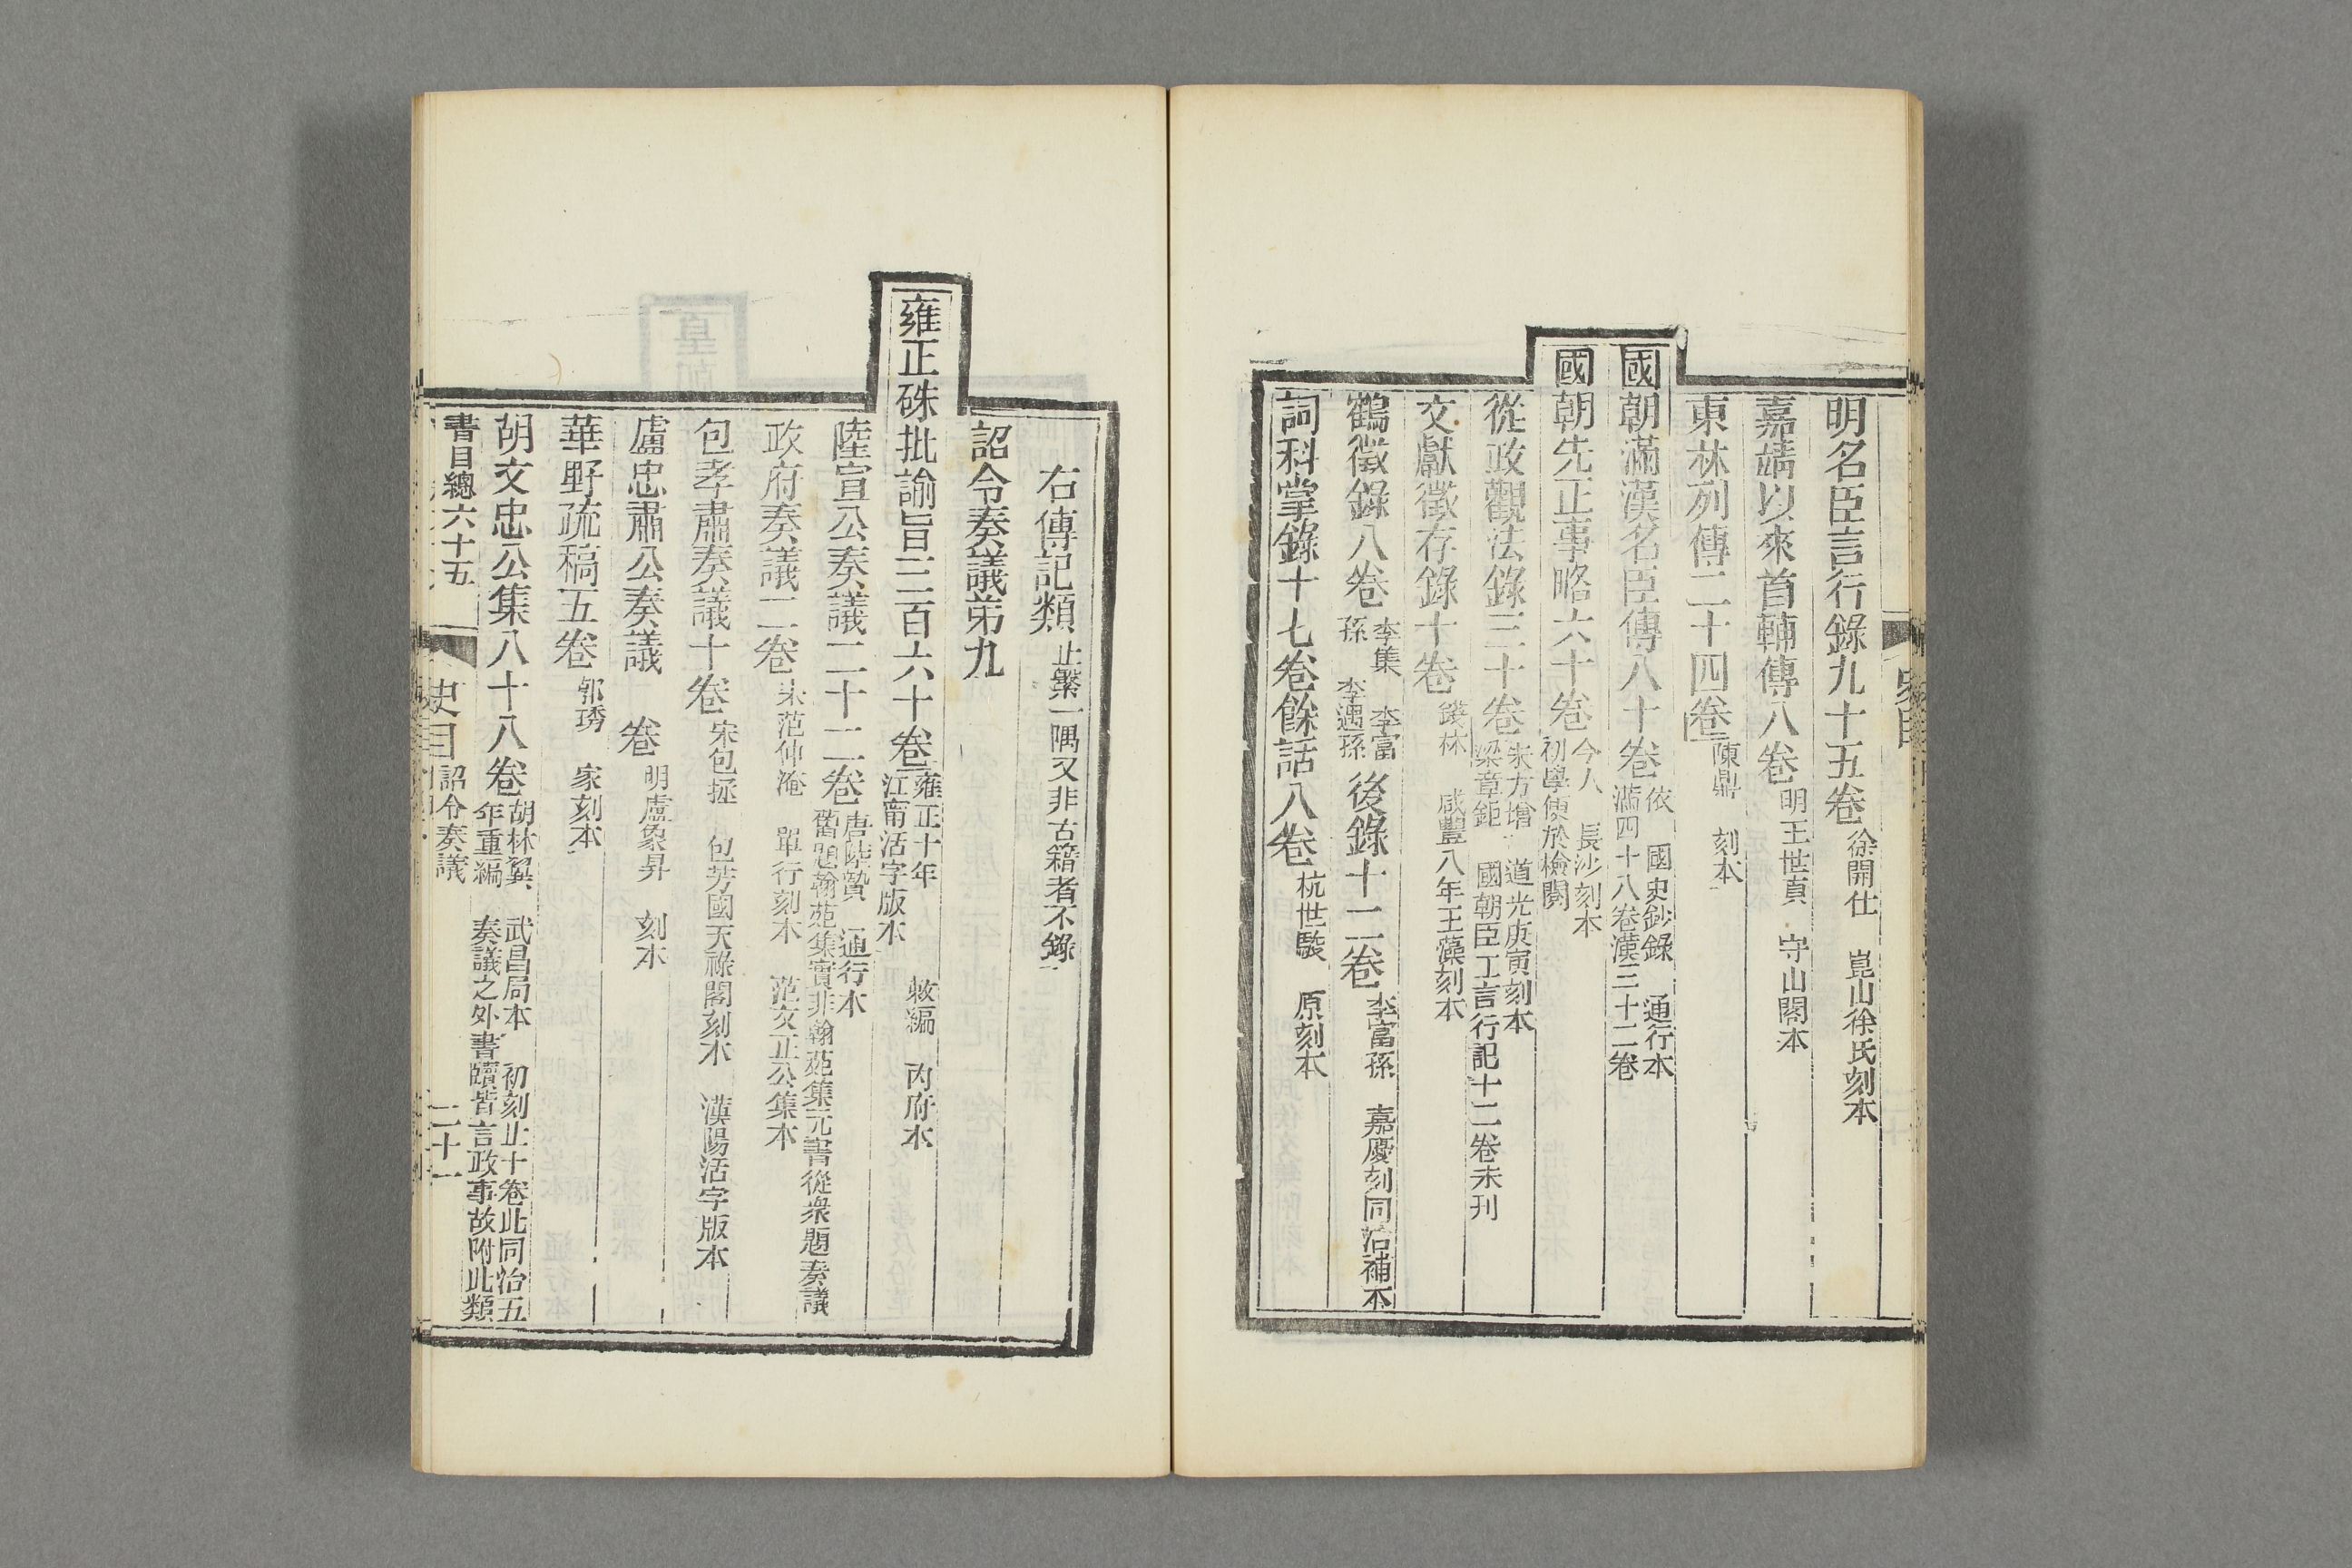 明名臣言行錄九十五卷 徐開仕 崑山徐氏刻本
嘉靖以來首輔傳八卷 明王世貞 守山閣本
東林列傳二十四卷 陳鼎 刻本
國朝滿漢名臣傳八十卷 依 國史鈔錄 通行本
滿四十八卷漢三十二卷
國朝先正事略六十卷 今人 長沙刻本
初學便於檢閱
從政觀法錄三十卷 朱方增 道光庚寅刻本
梁章鉅 國朝臣工言行記十二卷未刊
文獻徵存錄十卷 錢林 咸豐八年王藻刻本
鶴徵錄八卷 李集 李富
孫 李遇孫 後錄十二卷 李富孫 嘉慶刻同治補本
詞科掌錄十七卷餘話八卷 杭世駿 原刻本
右傳記類 止繫一隅又非古籍者不錄
詔令奏議弟九
雍正硃批諭旨三百六十卷 雍正十年 敕編 內府本
江甯活字版本
陸宣公奏議二十二卷 唐陸贄 通行本
舊題翰苑集實非翰苑集元書從衆題奏議
政府奏議二卷 宋范仲淹 單行刻本 范文正公集本
包孝肅奏議十卷 宋包拯 包芳國天祿閣刻本 漢陽活字版本
盧忠肅公奏議 卷 明盧象昇 刻本
華野疏稿五卷 郭琇 家刻本
胡文忠公集八十八卷 胡林翼 武昌局本 初刻止十卷此同治五
年重編 奏議之外書牘皆言政事故附此類
書目總六十五 史目 詔令奏議 二十一